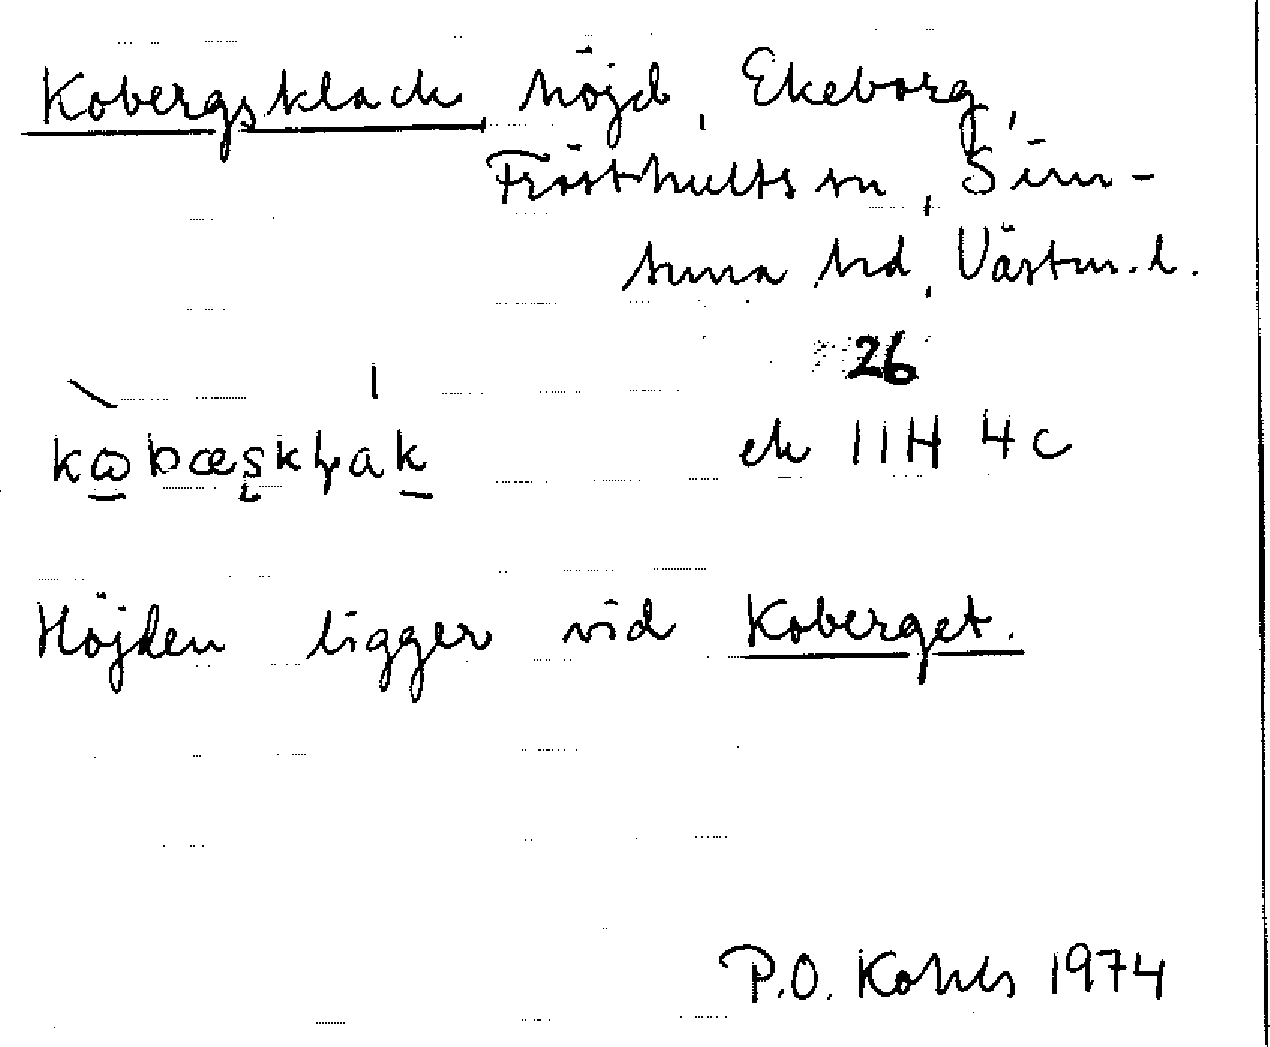 Kobergsklack höjd, Ekeborg,
Frösthults sn, Sim-
tuna hd, Västm. l.
26
ek 11H 4c
Höjden ligger vid Koberget.
P.O. Kohls 1974